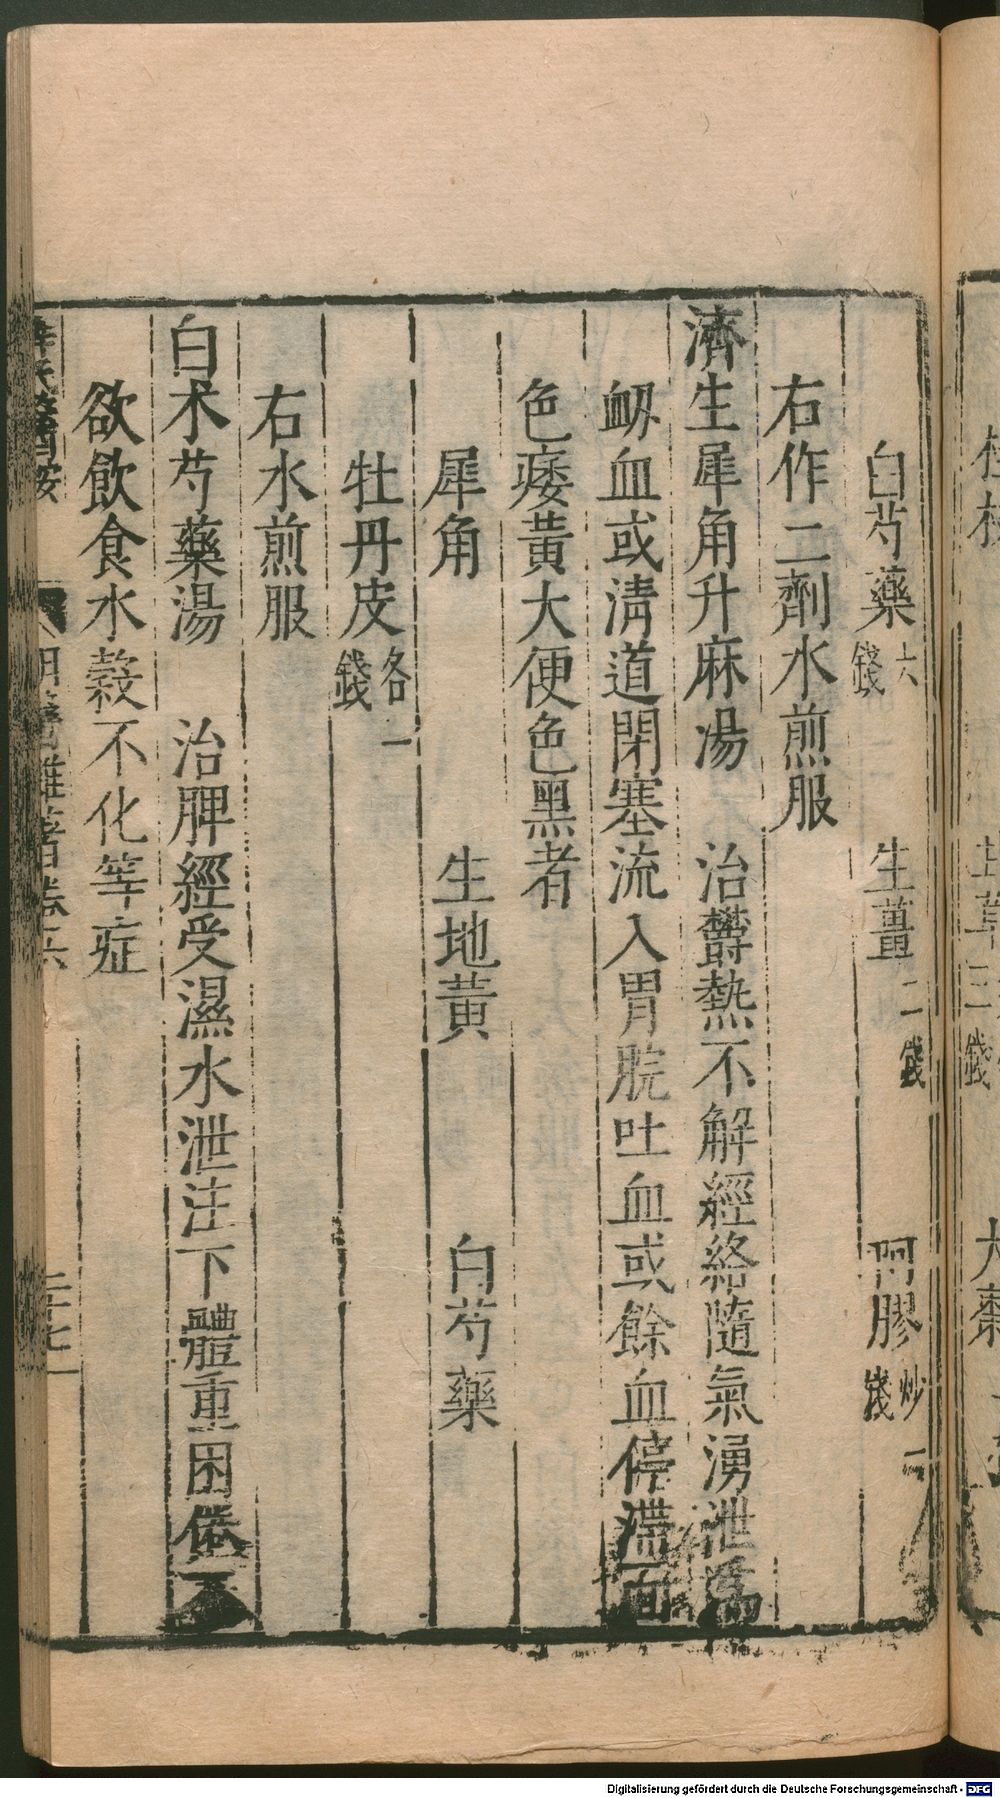 白芍藥六錢 生薑二錢 阿膠炒二錢
右作二劑水煎服
濟生犀角升麻湯 治鬱熱不解經絡隨氣湧泄爲
衂血或淸道閉塞流入胃脘吐血或餘血停滯面
色痿黃大便色黑者
犀角 生地黃 白芍藥
牡丹皮各一錢
右水煎服
白术芍藥湯 治脾經受濕水泄注下體重困倦不
欲飲食水穀不化等症
薛氏醫按 明醫雜著卷六 二十七
Digitalisierung gefördert durch die Deutsche Forschungsgemeinschaft - DFG